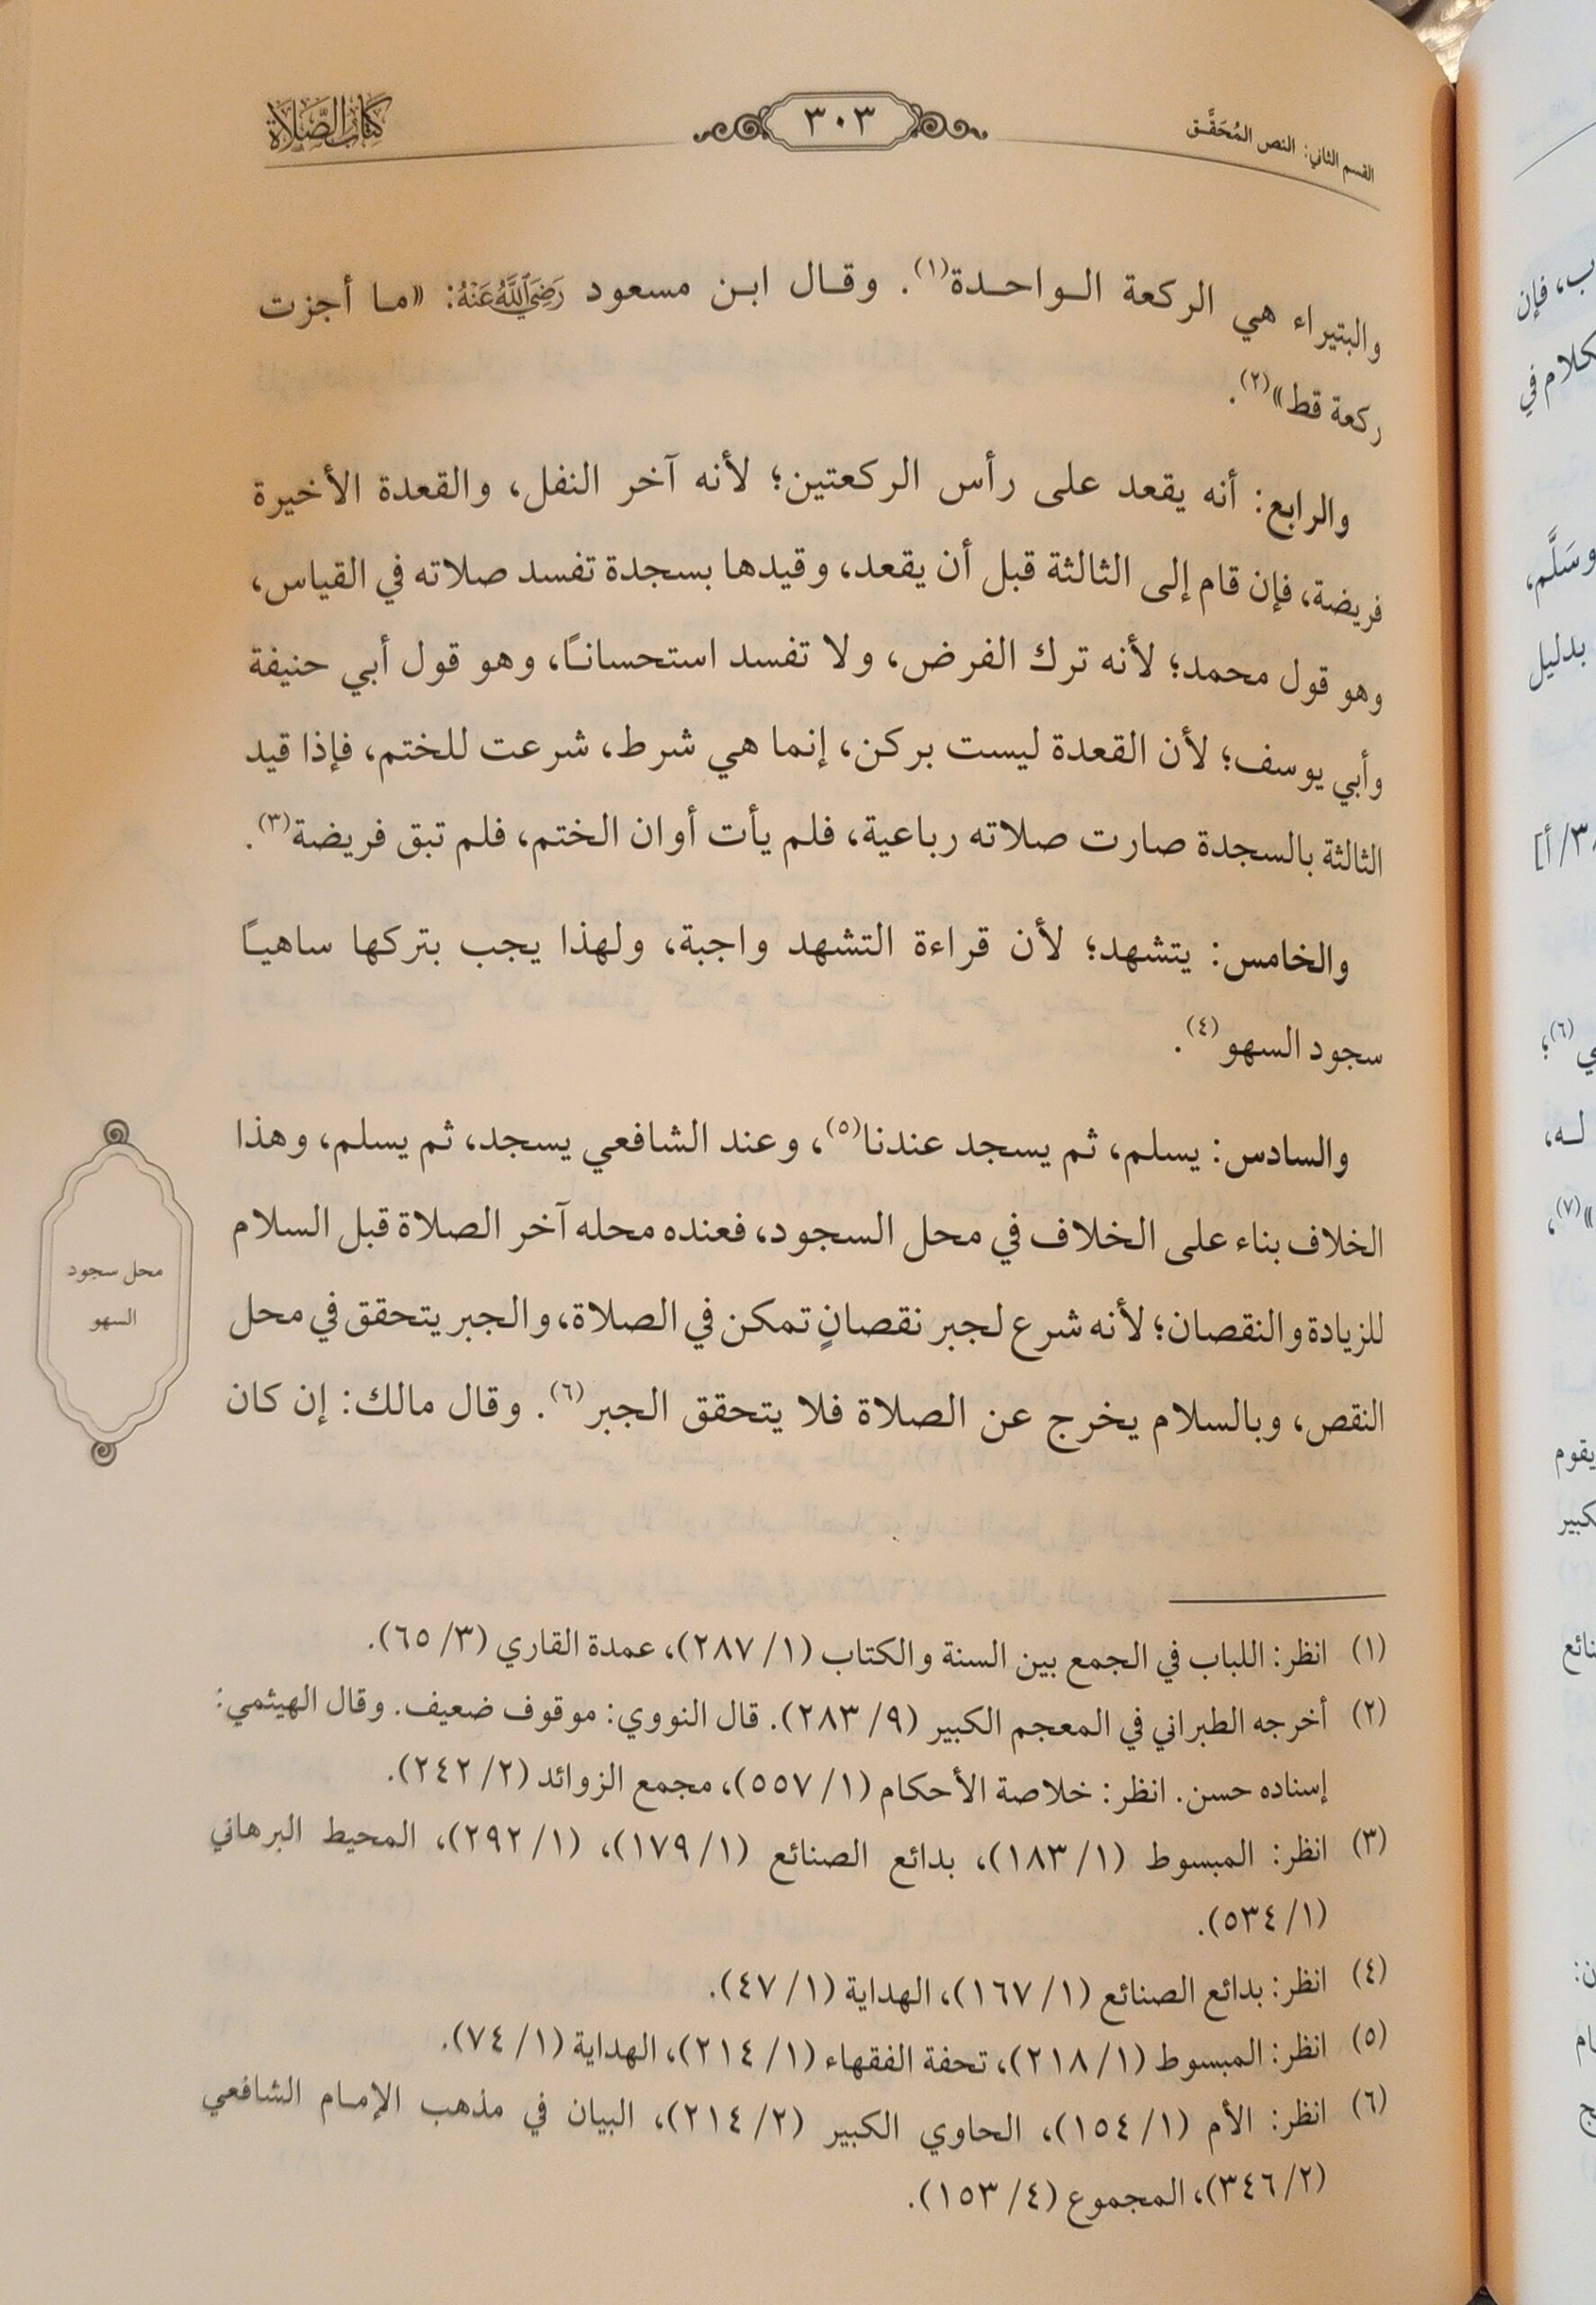 القسم الثاني: النص المُحَقَّق
٣٠٣
كتاب الصَّلَاة
والبتيراء هي الركعة الواحدة(١). وقال ابن مسعود رَضِيَ اللَّهُ عَنْهُ: «ما أجزت
ركعة قط»(٢).
والرابع: أنه يقعد على رأس الركعتين؛ لأنه آخر النفل، والقعدة الأخيرة
فريضة، فإن قام إلى الثالثة قبل أن يقعد، وقيدها بسجدة تفسد صلاته في القياس،
وهو قول محمد؛ لأنه ترك الفرض، ولا تفسد استحسانًا، وهو قول أبي حنيفة
وأبي يوسف؛ لأن القعدة ليست بركن، إنما هي شرط، شرعت للختم، فإذا قيد
الثالثة بالسجدة صارت صلاته رباعية، فلم يأت أوان الختم، فلم تبق فريضة(٣).
والخامس: يتشهد؛ لأن قراءة التشهد واجبة، ولهذا يجب بتركها ساهيًا
سجود السهو(٤).
والسادس: يسلم، ثم يسجد عندنا(٥)، وعند الشافعي يسجد، ثم يسلم، وهذا
الخلاف بناء على الخلاف في محل السجود، فعنده محله آخر الصلاة قبل السلام
للزيادة والنقصان؛ لأنه شرع لجبر نقصانٍ تمكن في الصلاة، والجبر يتحقق في محل
النقص، وبالسلام يخرج عن الصلاة فلا يتحقق الجبر(٦). وقال مالك: إن كان
محل سجود
السهو
(١) انظر: اللباب في الجمع بين السنة والكتاب (١/ ٢٨٧)، عمدة القاري (٣/ ٦٥).
(٢) أخرجه الطبراني في المعجم الكبير (٩/ ٢٨٣). قال النووي: موقوف ضعيف. وقال الهيثمي:
إسناده حسن. انظر: خلاصة الأحكام (١/ ٥٥٧)، مجمع الزوائد (٢/ ٢٤٢).
(٣) انظر: المبسوط (١/ ١٨٣)، بدائع الصنائع (١/ ١٧٩)، (١/ ٢٩٢)، المحيط البرهاني
(١/ ٥٣٤).
(٤) انظر: بدائع الصنائع (١/ ١٦٧)، الهداية (١/ ٤٧).
(٥) انظر: المبسوط (١/ ٢١٨)، تحفة الفقهاء (١/ ٢١٤)، الهداية (١/ ٧٤).
(٦) انظر: الأم (١/ ١٥٤)، الحاوي الكبير (٢/ ٢١٤)، البيان في مذهب الإمام الشافعي
(٢/ ٣٤٦)، المجموع (٤/ ١٥٣).
ب، فإن
كلام في
وسَلَّم،
بدليل
/أ]
(٦)؛
لـه،
»(٧)،
يقوم